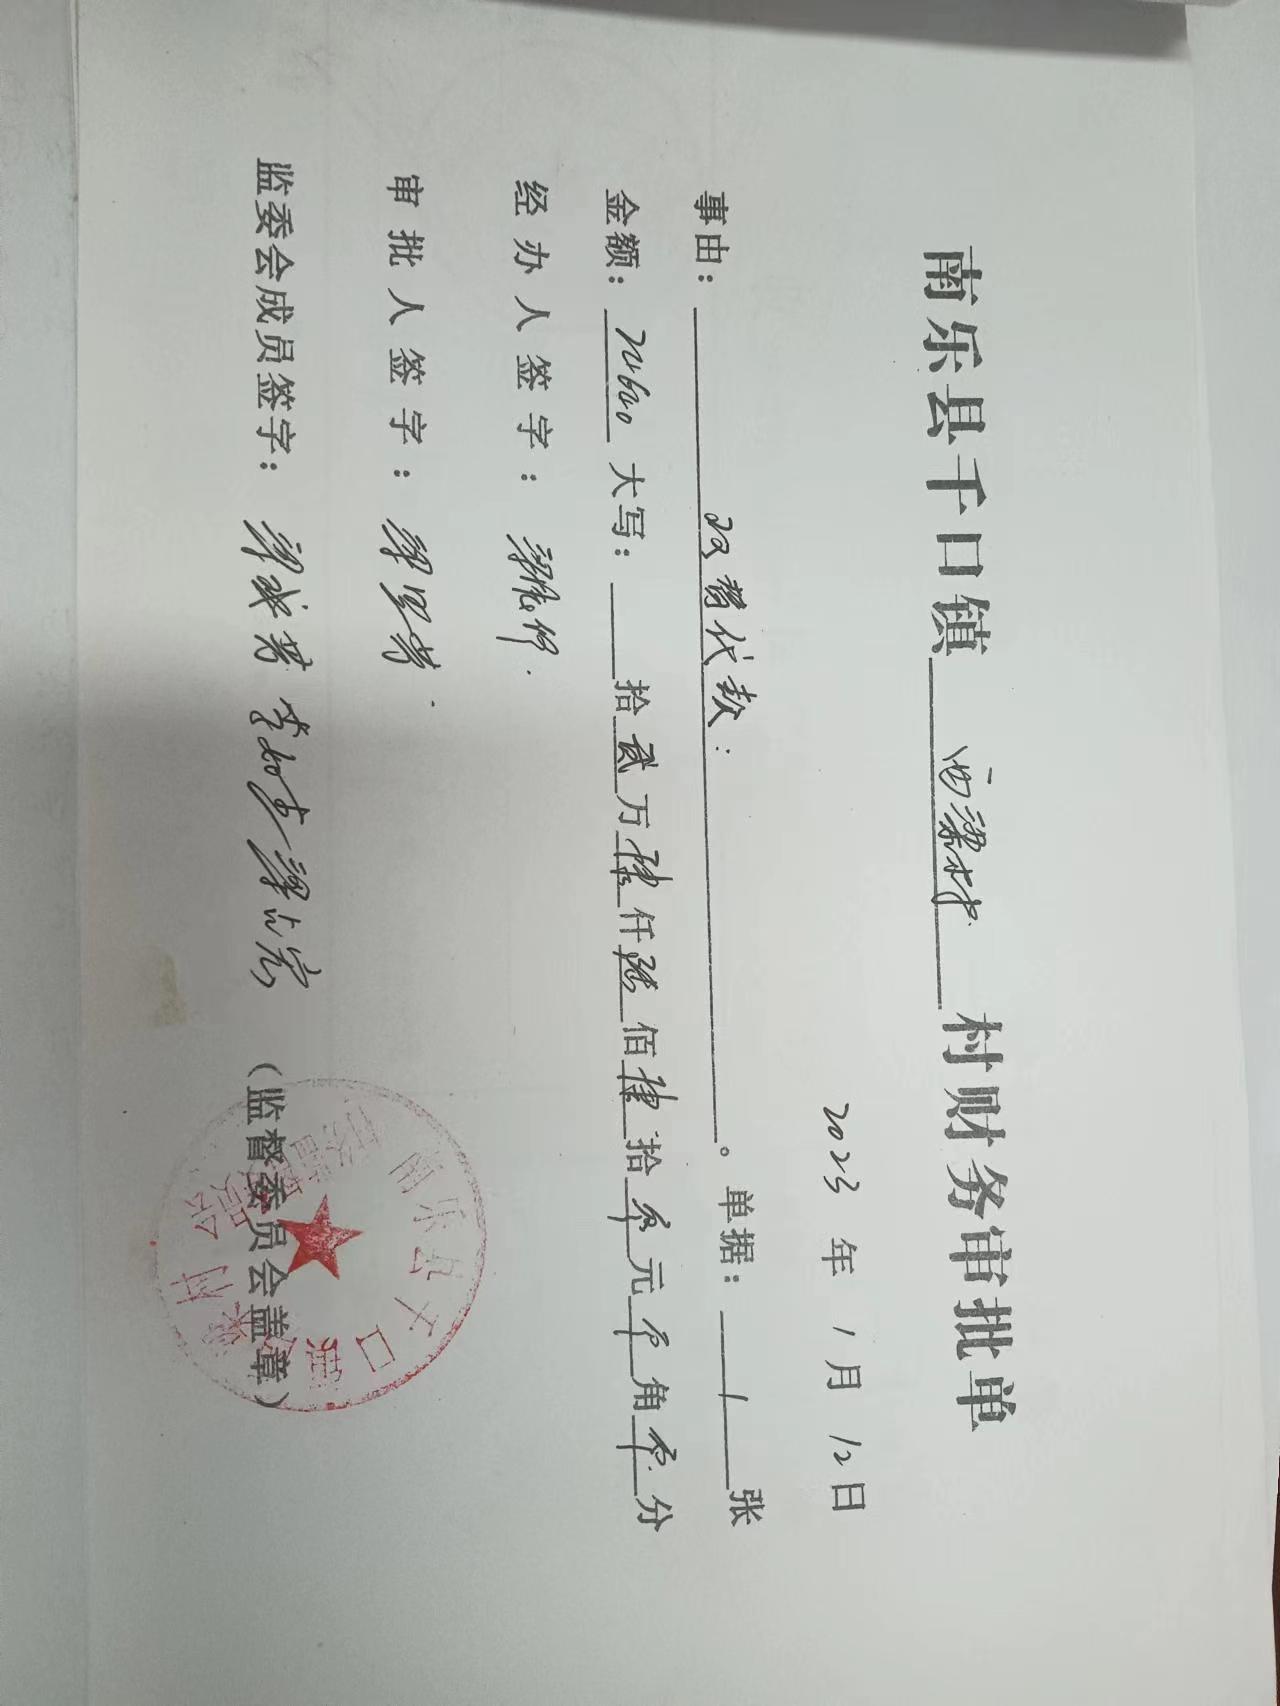 南乐县千口镇 西梁村 村财务审批单
2023 年 1 月 12 日
事由： 双替代款： 。单据： 1 张
金额： 大写： 拾 贰 万 陆 仟 陆 佰 陆 拾 零 元 零 角 零 分
经办人签字： 梁
审批人签字： 梁
监委会成员签字： 梁 李 梁 （监督委员会盖章）
南乐县千口镇 梁村村务监督委员会